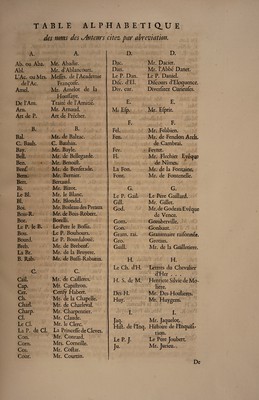 TABLE ALPHABETIQUE
des noms des Auteurs citez par abreviation.
A.
Ab. ou Aba. Mr. Abadie.
Abl. Mr. d'Ablancourt.
L'Ac. ou Mrs. de l'Ac. Messrs. de l'Academie Françoise.
Amel. Mr. Amelot de la Houssaye.
De l'Am. Traité de l'Amitié.
Arn. Mr. Arnaud.
Art de P. Art de Prêcher.
B.
Bal. Mr. de Balzac.
C. Bauh. C. Bauhin.
Bay. Mr. Bayle.
Bell. Mr. de Bellegarde.
Ben. Mr. Benoist.
Benf. Mr. de Benserade.
Bern. Mr. Bernier.
Ber. Bernard.
Bi. Mr. Binet.
Le Bl. Mr. le Blanc.
Bl. Mr. Blondel.
Boi. Mr. Boileau des Preaux
Bois-R. Mr. de Bois-Robert.
Bor. Borelli.
Le P. le B. Le Pere le Bossu.
Bou. Le P. Bouhours.
Bourd. Le P. Bourdaloue.
Breb. Mr. de Brebeuf.
La Br. Mr. de la Bruyere.
B. Rab. Mr. de Bussi-Rabutin.
C.
Cail. Mr. de Caillieres.
Cap. Mr. Capistron.
Cei. Cerisy Habert.
Ch. Mr. de la Chapelle.
Charl. Mr. de Charleval.
Charp. Mr. Charpentier.
Cl. Mr. Claude.
Le Cl. Mr. le Clerc.
La P. de Cl. La Princesse de Cleves.
Con. Mr. Conrard.
Corn. Mr. Corneille.
Cos. Mr. Costar.
Cour. Mr. Courtin.
D.
Dac. Mr. Dacier.
Dan. Mr. l'Abbé Danet.
Le P. Dan. Le P. Daniel.
Disc. d'El. Discours d'Eloquence.
Div. cur. Diversitez Curieuses.
E.
M. Esp. Mr. Esprit.
F.
Fel. Mr. Felibien.
Fen. Mr. de Fenelon Arch. de Cambrai.
Fer. Ferrier.
Fl. Mr. Flechier Evêque de Nîmes.
La Fon. Mr. de la Fontaine.
Font. Mr. de Fontenelle.
G.
Le P. Gail. Le Pere Gaillard.
Gill. Mr. Gillet.
God. Mr. de Godeau Evêque de Vence.
Gom. Gomberville.
Gon. Gombaut.
Gram. rai. Grammaire raisonnée.
Gro. Grotius.
Guill. Mr. de la Guilletiere.
H.
Le Ch. d'H. Lettres du Chevalier d'Her
H. S. de M. Henriette Silvie de Moliere.
Des-H. Me. Des-Houlieres.
Huy. Mr. Huygens.
I.
Jaq. Mr. Jaquelot.
Hist. de l'Inq. Histoire de l'Inquisition.
Le P. J. Le Pere Joubert.
Ju. Mr. Jurieu.
De